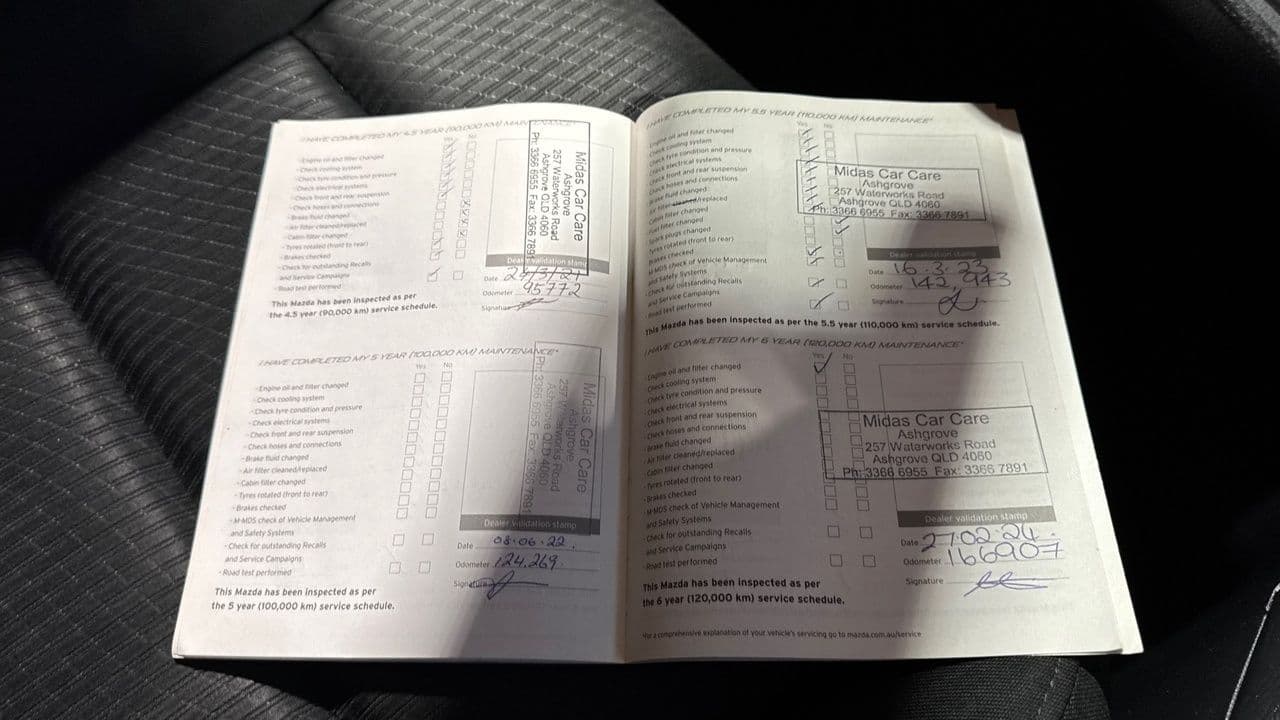 I HAVE COMPLETED MY 4.5 YEAR (90,000 KM) MAINTENANCE*
Yes No
- Engine oil and filter changed
- Check cooling system
- Check tyre condition and pressure
- Check electrical systems
- Check front and rear suspension
- Check hoses and connections
- Brake fluid changed
- Air filter cleaned/replaced
- Cabin filter changed
- Tyres rotated (front to rear)
- Brakes checked
- Check for outstanding Recalls
and Service Campaigns
- Road test performed
This Mazda has been inspected as per
the 4.5 year (90,000 km) service schedule.
Midas Car Care
Ashgrove
257 Waterworks Road
Ashgrove QLD 4060
Ph: 3366 6955 Fax: 3366 789
Dealer validation stamp
Date 2 /3/21
Odometer 95772
Signature
I HAVE COMPLETED MY 5 YEAR (100,000 KM) MAINTENANCE*
Yes No
- Engine oil and filter changed
- Check cooling system
- Check tyre condition and pressure
- Check electrical systems
- Check front and rear suspension
- Check hoses and connections
- Brake fluid changed
- Air filter cleaned/replaced
- Cabin filter changed
- Tyres rotated (front to rear)
- Brakes checked
- M-MDS check of Vehicle Management
and Safety Systems
- Check for outstanding Recalls
and Service Campaigns
- Road test performed
This Mazda has been inspected as per
the 5 year (100,000 km) service schedule.
Midas Car Care
Ashgrove
257 Waterworks Road
Ashgrove QLD 4060
Ph: 3366 6955 Fax: 3366 7891
Dealer validation stamp
Date 08.06.22.
Odometer 124,269
Signature
I HAVE COMPLETED MY 5.5 YEAR (110,000 KM) MAINTENANCE*
Yes No
- Engine oil and filter changed
- Check cooling system
- Check tyre condition and pressure
- Check electrical systems
- Check front and rear suspension
- Check hoses and connections
- Brake fluid changed
- Air filter cleaned/replaced
- Cabin filter changed
- Fuel filter changed
- Spark plugs changed
- Tyres rotated (front to rear)
- Brakes checked
- M-MDS check of Vehicle Management
and Safety Systems
- Check for outstanding Recalls
and Service Campaigns
- Road test performed
This Mazda has been inspected as per the 5.5 year (110,000 km) service schedule.
Midas Car Care
Ashgrove
257 Waterworks Road
Ashgrove QLD 4060
Ph: 3366 6955 Fax: 3366 7891
Dealer validation stamp
Date 16.3.23
Odometer 142,943
Signature
I HAVE COMPLETED MY 6 YEAR (120,000 KM) MAINTENANCE*
Yes No
- Engine oil and filter changed
- Check cooling system
- Check tyre condition and pressure
- Check electrical systems
- Check front and rear suspension
- Check hoses and connections
- Brake fluid changed
- Air filter cleaned/replaced
- Cabin filter changed
- Tyres rotated (front to rear)
- Brakes checked
- M-MDS check of Vehicle Management
and Safety Systems
- Check for outstanding Recalls
and Service Campaigns
- Road test performed
This Mazda has been inspected as per
the 6 year (120,000 km) service schedule.
Midas Car Care
Ashgrove
257 Waterworks Road
Ashgrove QLD 4060
Ph: 3366 6955 Fax: 3366 7891
Dealer validation stamp
Date 27.02.24.
Odometer 166907
Signature
*For a comprehensive explanation of your vehicle's servicing go to mazda.com.au/service